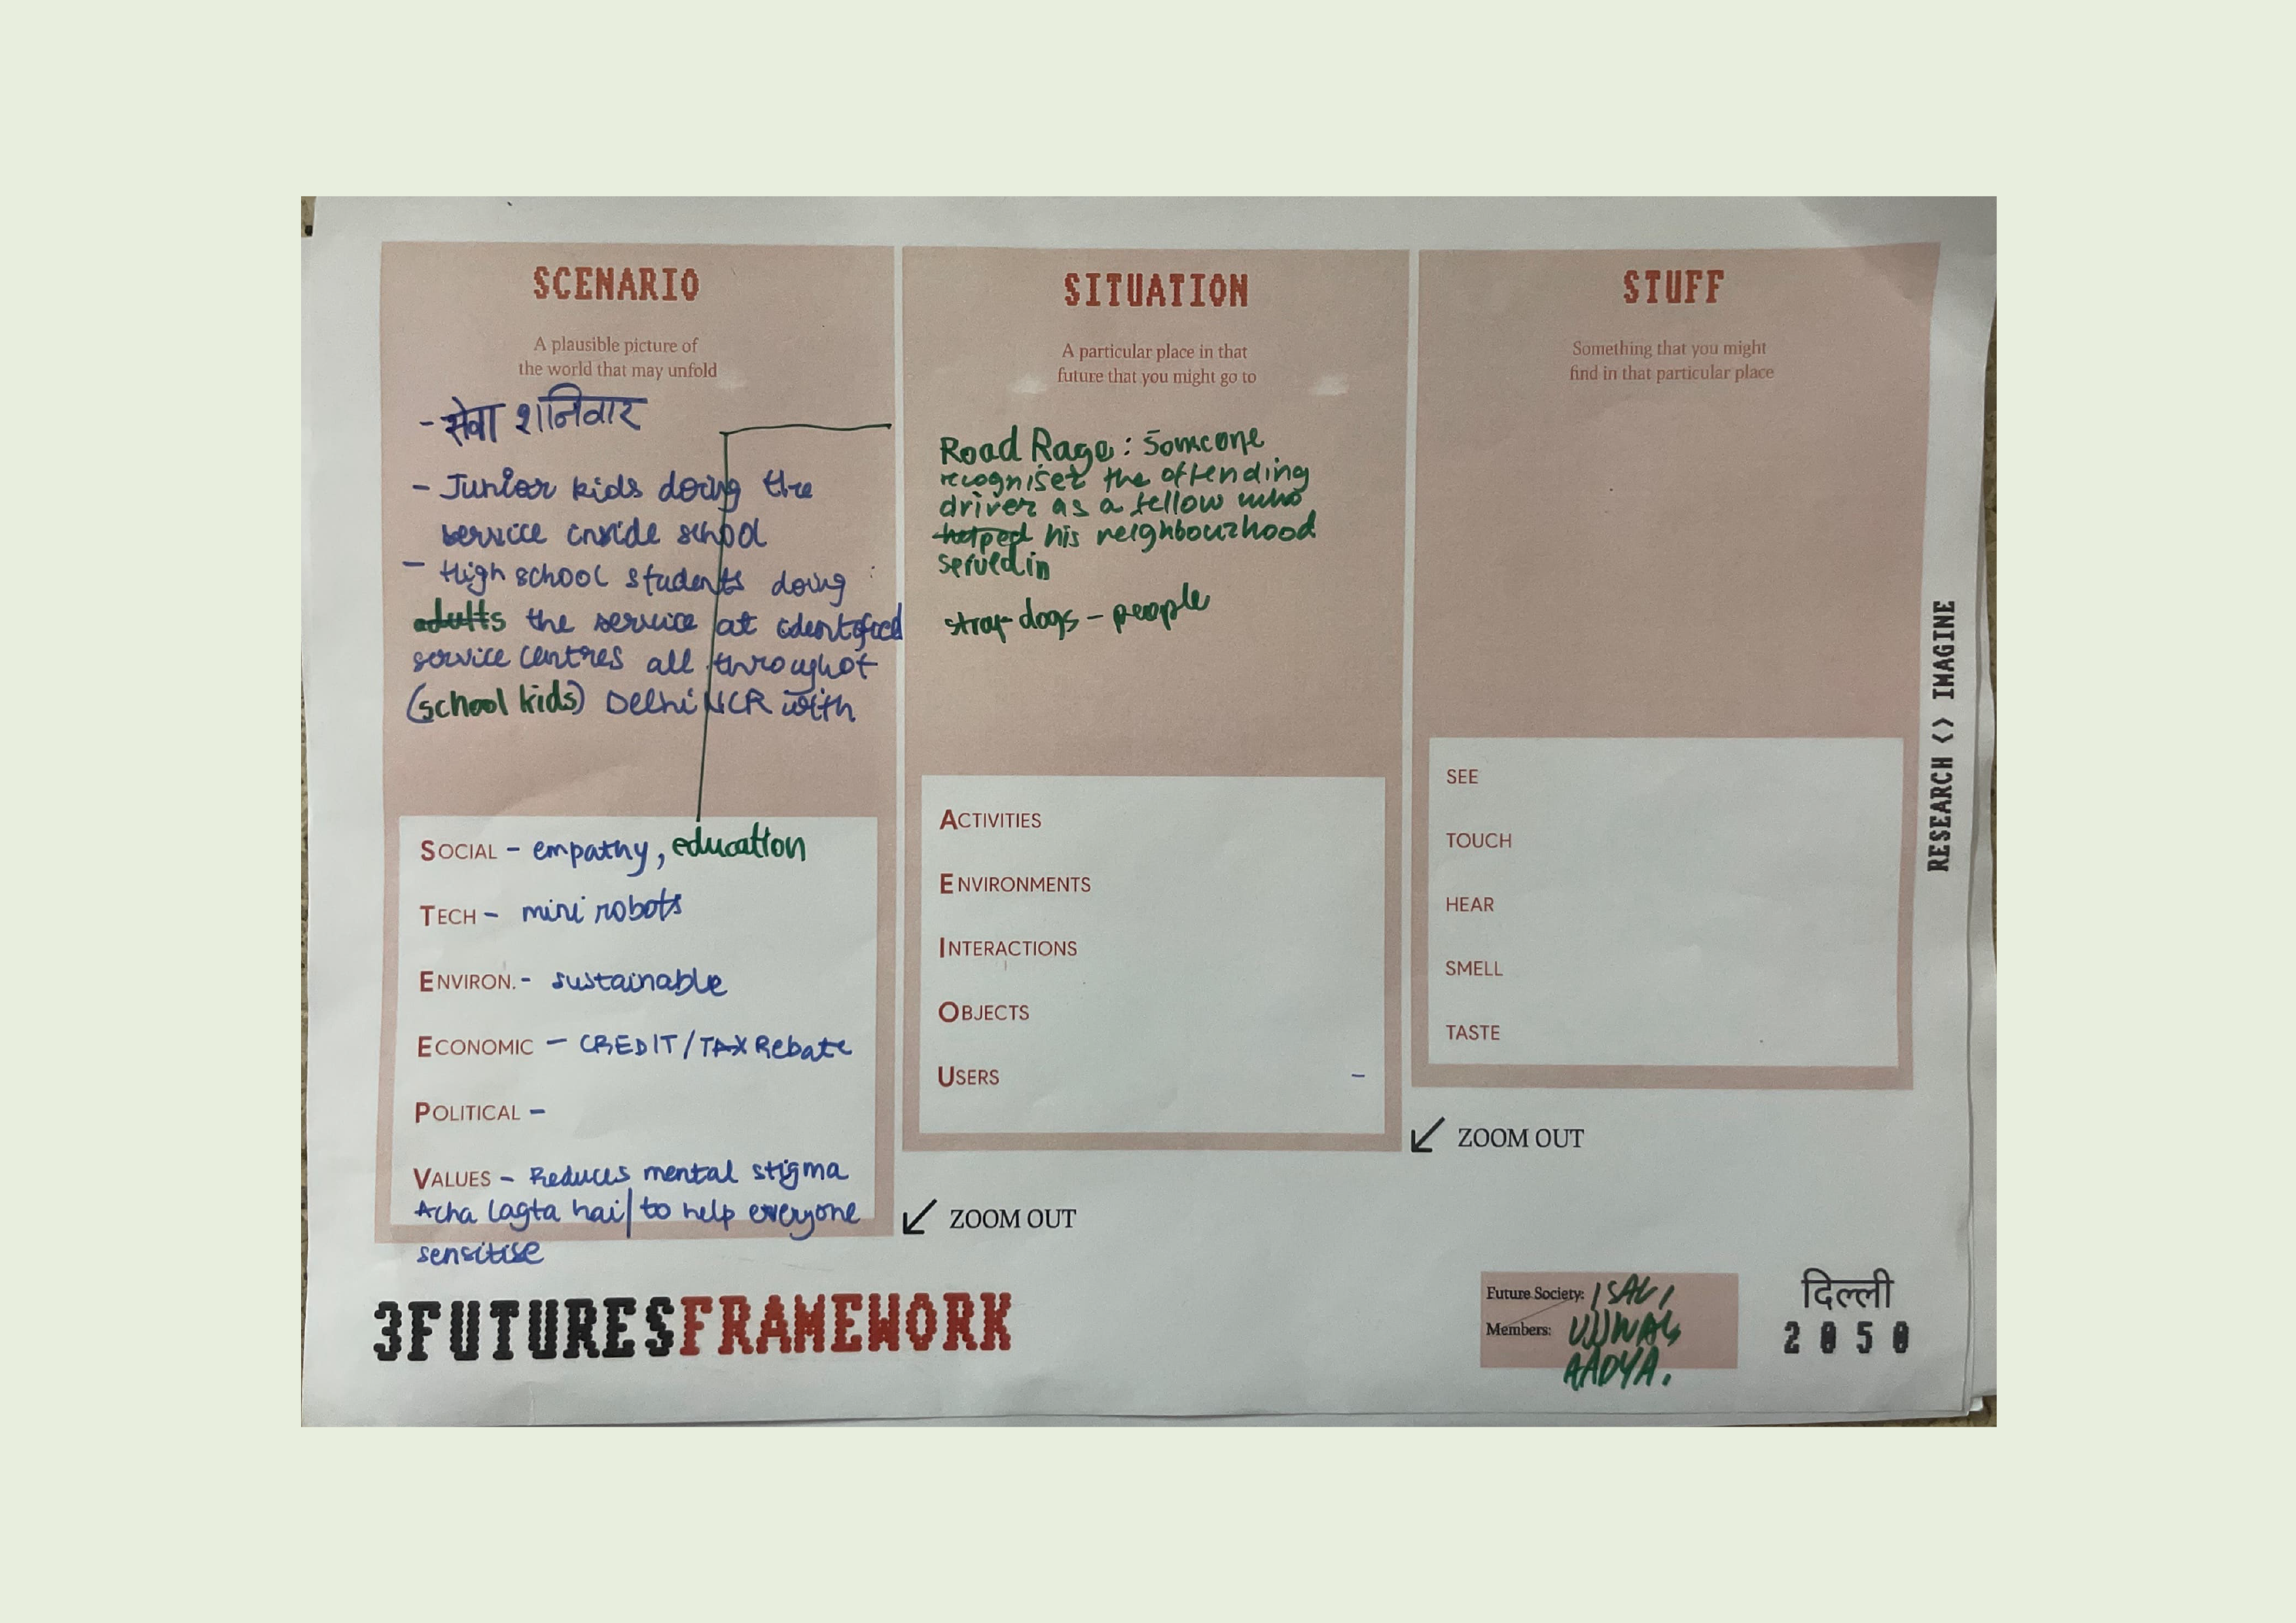 SCENARIO
A plausible picture of
the world that may unfold
- सेवा शनिवार
- Junior kids doing the
service inside school
- High school students doing
adults the service at identified
service centres all throughot
(school kids) Delhi NCR with
SOCIAL - empathy, education
TECH - mini robots
ENVIRON. - sustainable
ECONOMIC - CREDIT/TAX Rebate
POLITICAL -
VALUES - Reduces mental stigma
Acha lagta hai| to help everyone
sensitise
SITUATION
A particular place in that
future that you might go to
Road Rage: Someone
recognises the offending
driver as a fellow who
helped his neighbourhood
served in
stray dogs - people
ACTIVITIES
ENVIRONMENTS
INTERACTIONS
OBJECTS
USERS -
ZOOM OUT
STUFF
Something that you might
find in that particular place
SEE
TOUCH
HEAR
SMELL
TASTE
ZOOM OUT
RESEARCH <> IMAGINE
3FUTURESFRAMEWORK
Future Society:
Members: UJJWAL
AADYA.
दिल्ली
2050